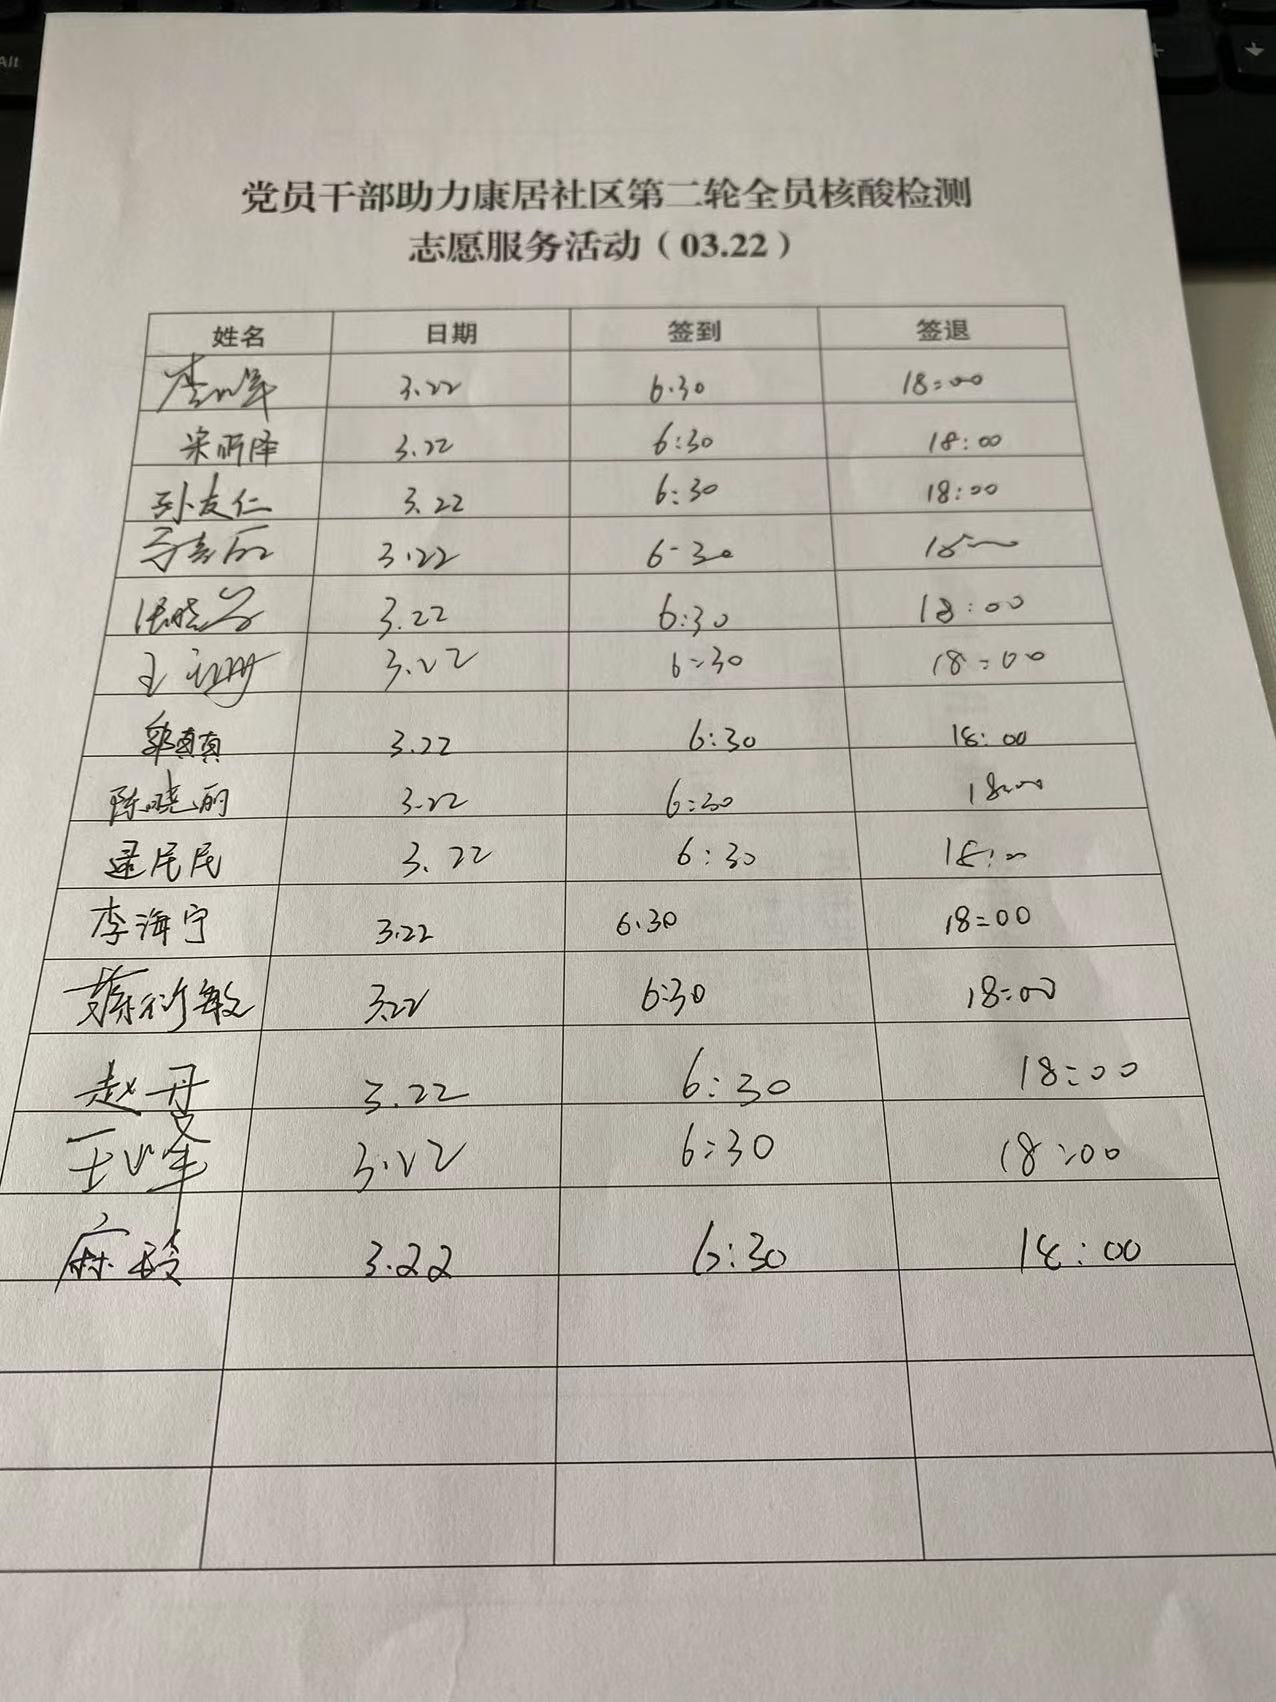 党员干部助力康居社区第二轮全员核酸检测
志愿服务活动（03.22）
姓名 日期 签到 签退
3.22 6.30 18:00
3.22 6:30 18:00
孙友仁 3.22 6:30 18:00
3.22 6-30
3.22 6:30 18:00
王 3.22 6:30 18:00
郭真真 3.22 6:30 18:00
陈晓丽 3.22 6:30 18:00
逯民民 3.22 6:30 18:00
李海宁 3.22 6.30 18:00
蔡衍敏 3.22 6:30 18:00
赵丹 3.22 6:30 18:00
王峰 3.22 6:30 18:00
麻玲 3.22 6:30 18:00
Alt